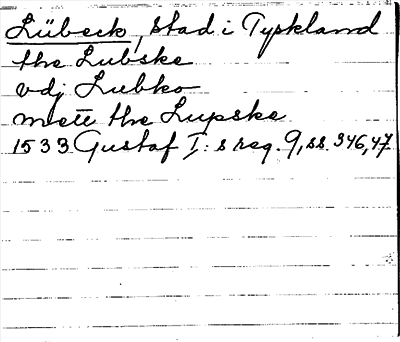 Lübeck, stad i Tyskland
the Lubske
vdj Lubko
mett the Lupske
1533 Gustaf I:s reg. 9, ss. 346, 47